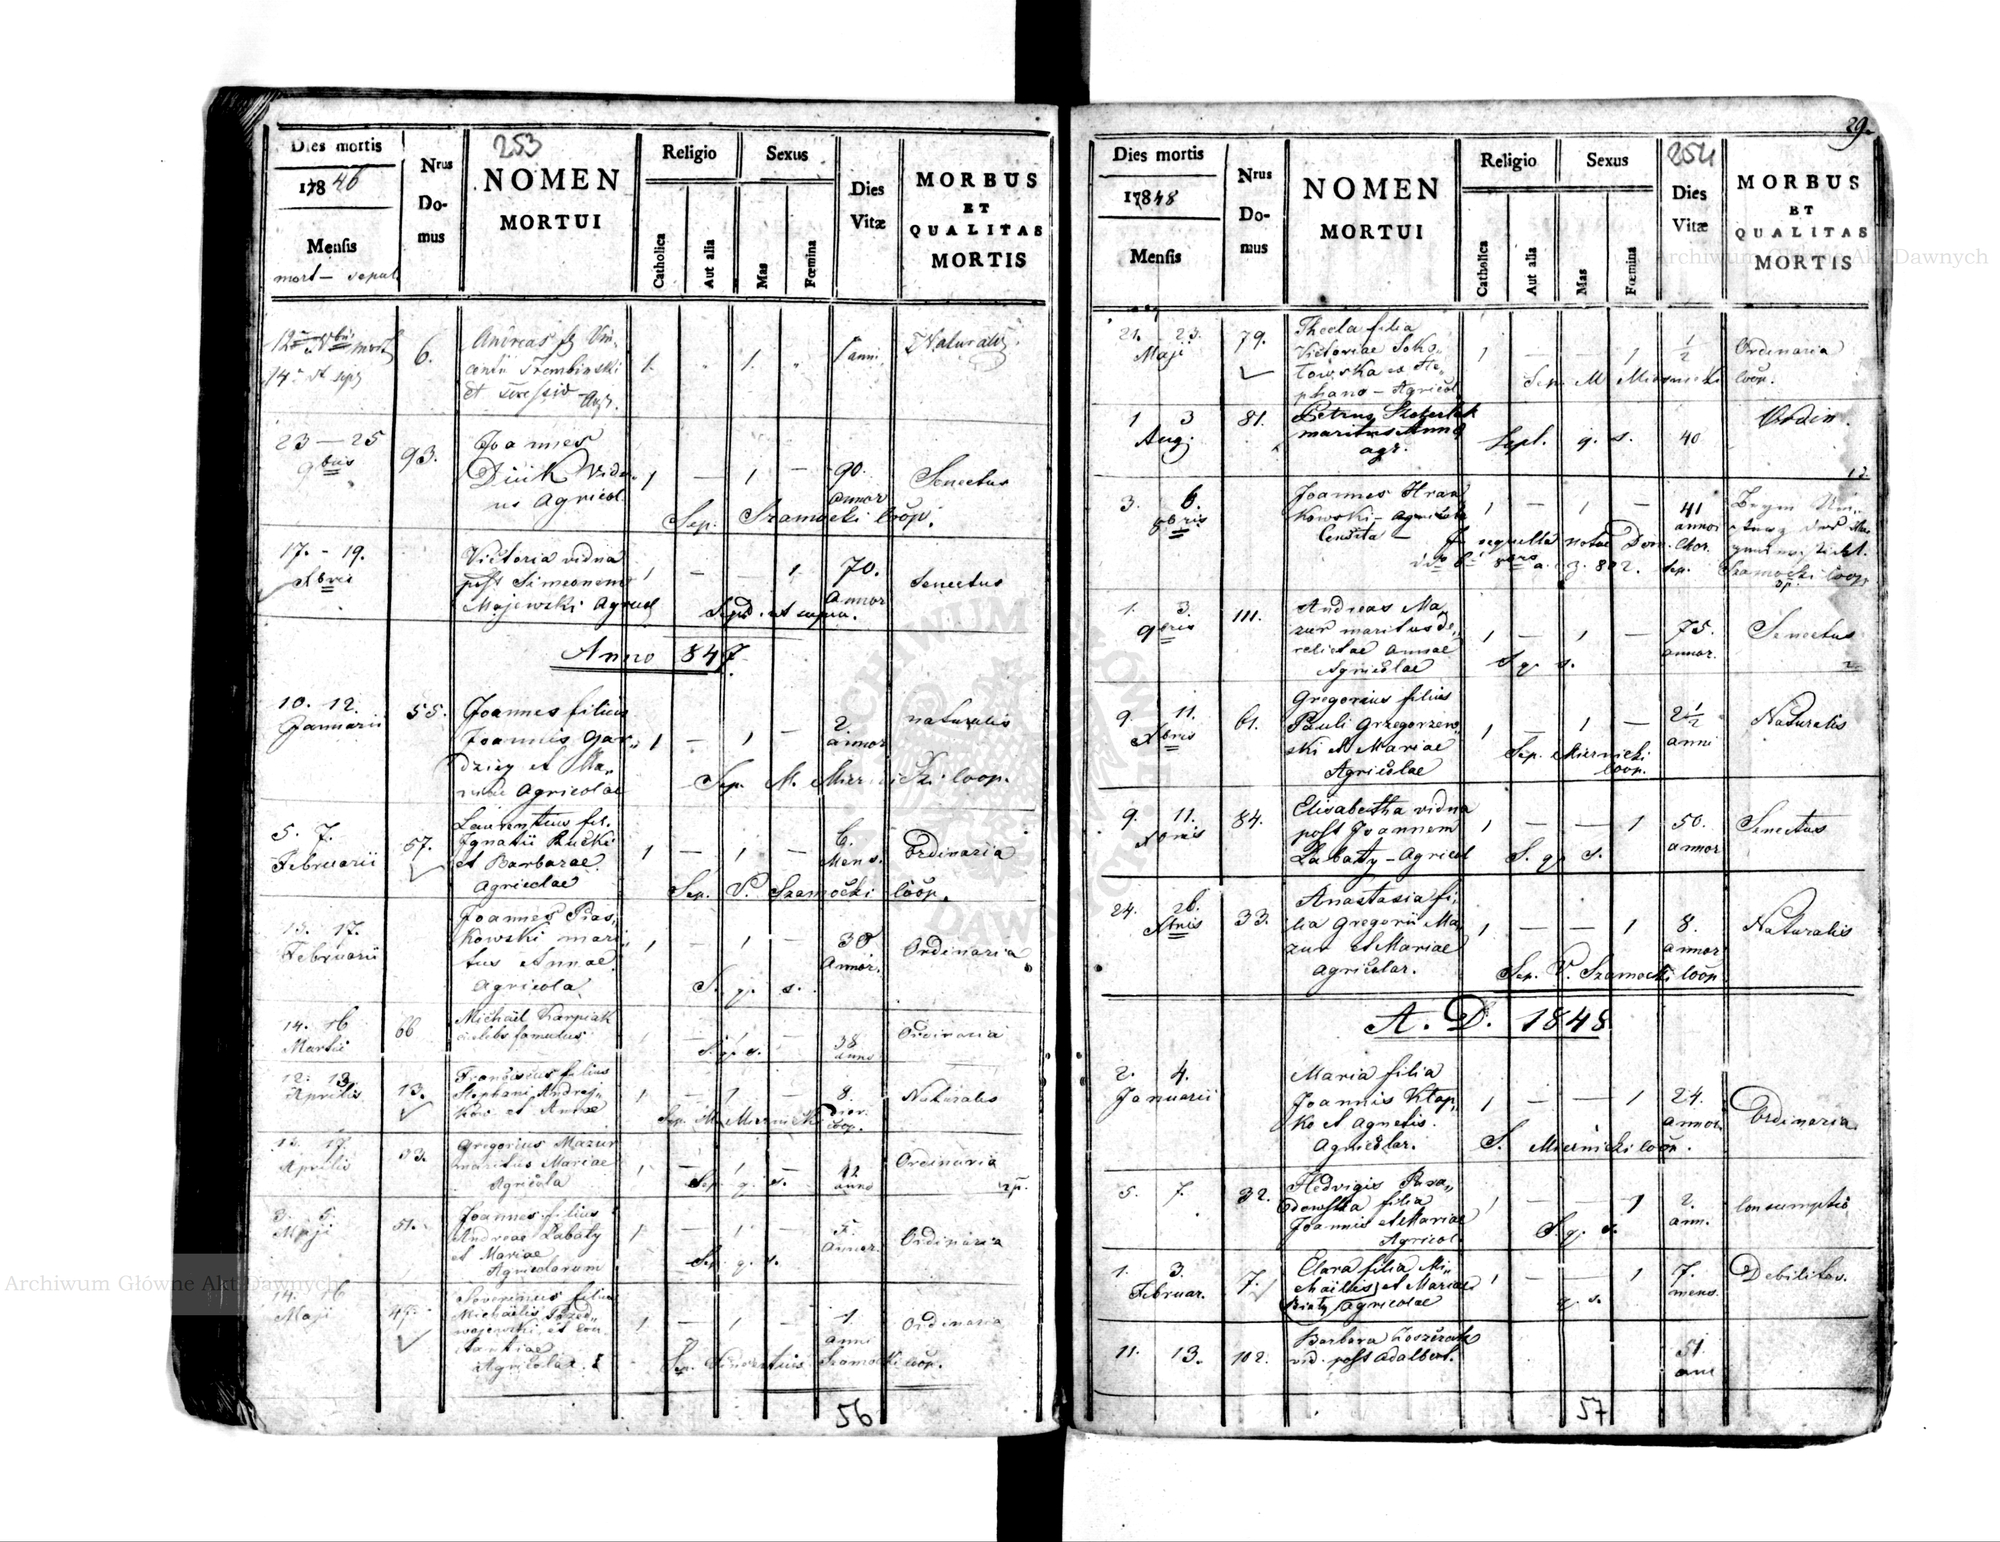 253
Dies mortis
1846
Mensis
mort — sepul.
Nrus
Do-
mus
NOMEN
MORTUI
Religio
Catholica
Aut alia
Sexus
Mas
Fœmina
Dies
Vitæ
MORBUS
ET
QUALITAS
MORTIS
6.
Andreas
Trembinski
1.
1.
23 — 25
9bris
93.
Joannes
Agricol
1
—
1
—
90.
annor
Senectus
Sep. Szamocki Coop.
17. - 19.
Xbris
Victoria vidua
post Simeonem
Majewski Agricol
1
—
—
1
70.
Annor
Senectus
Sep. ut supra.
Anno 847.
10. 12.
Januarii
55.
Joannes filius
Joannis Gar„
dziey et Ma„
Agricolae
1
—
1
—
2.
annor
naturalis
Sep. M. Miernicki Coop.
5. 7.
Februarii
57.
Laurentius fil.
Ignatii Rucki
et Barbarae
Agricolae
1
—
1
—
6.
Mens.
Ordinaria
Sep. V. Szamocki Coop.
15. 17.
Februarii
Joannes Pias„
kowski mari„
tus Annae
Agricola
1
—
1
—
30
Annor.
Ordinaria
S. q. s.
14. 16
Martii
66
Michael Karpiak
famulus
1
—
1
—
38
anno
Ordinaria
S. q. s.
12. 13.
Aprilis
13.
Franciscus filius
Stephani Andrey„
kow et Annae
1
—
1
—
8.
dier.
Naturalis
Sep. M. Miernicki Coop.
15. 17.
Aprilis
Gregorius Mazur
maritus Mariae
Agricola
1
—
1
—
42
anno
Ordinaria
Sep. q. s.
3. 5.
Maji
51.
Joannes filius
Andreae Labaty
et Mariae
Agricolarum
1
—
1
—
5.
Annor.
Ordinaria
Sep. q. s.
14. 16
Maji
45.
Severinus filius
Michaelis
Agricolar.
1
—
1
—
1.
anni
Ordinaria
Sep. Vincentius Szamocki Coop.
56
29.
254
Dies mortis
1848
Mensis
Nrus
Do-
mus
NOMEN
MORTUI
Religio
Catholica
Aut alia
Sexus
Mas
Fœmina
Dies
Vitæ
MORBUS
ET
QUALITAS
MORTIS
21. 23.
Maji
79.
Thecla filia
Victoriae Soko„
łowska et Ste„
phano — Agricol
1
—
—
1
1/2
Ordinaria
Sep. M Miernicki Coop.
1 3
Aug.
81.
Petrus
maritus Annae
agr.
Sepl. q. s.
40
Ordin.
3. 6.
8bris
Joannes Hran
kowski — Agricola
1
—
1
—
41
annor
Szamocki Coop.
1. 3.
9bris
111.
Andreas Ma„
zur maritus de„
relictae Annae
Agricolae
1
—
1
—
75.
annor.
Senectus
S q. s.
9. 11.
Xbris
61.
Gregorius filius
Pauli Grzegorzew„
ski et Mariae
Agricolae
1
—
1
—
2 1/2
anni
Naturalis
Sep. Miernicki
Coop.
9. 11.
Xbris
84.
Elisabetha vidua
post Joannem
Labaty — Agricol
1
—
—
1
50.
annor
Senectus
S. q. s.
24. 26.
Xbris
33.
Anastasia fi„
lia Gregorii Ma„
zur et Mariae
Agricolar.
1
—
—
1
8.
annor
Naturalis
Sep. V. Szamocki Coop.
A. D. 1848
2. 4.
Januarii
Maria filia
Joannis Kłap„
ko et Agnetis.
Agricolar.
1
—
—
1
24.
annor.
Ordinaria
S. Miernicki Coop.
5. 7.
32.
Hedvigis Rza„
dowska filia
Joannis et Mariae
Agricol.
1
—
—
1
2.
ann.
Consumptio
S. q. s.
1. 3.
Februar.
7.
Clara filia Mi„
chaelis et Mariae
Agricolae
1
—
—
1
7.
mens.
Debilitas.
q. s.
11. 13.
102.
Barbara
vid. post Adalbert.
51.
ann
57
Archiwum Główne Akt Dawnych